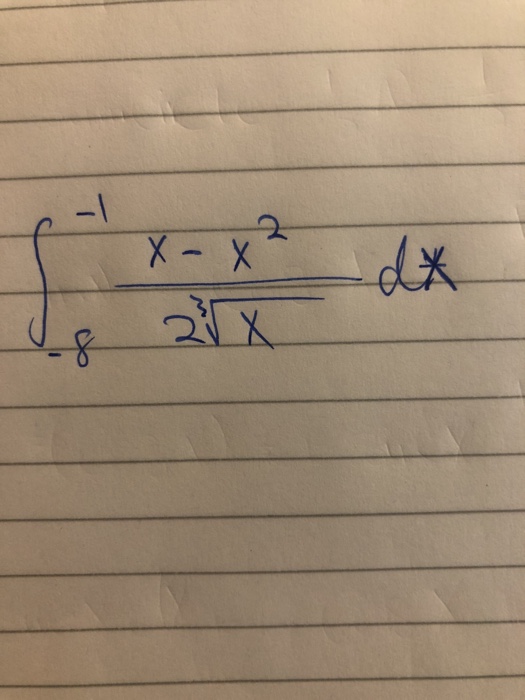 ∫_{-8}^{-1} \frac{x - x^2}{2\sqrt[3]{x}} dx